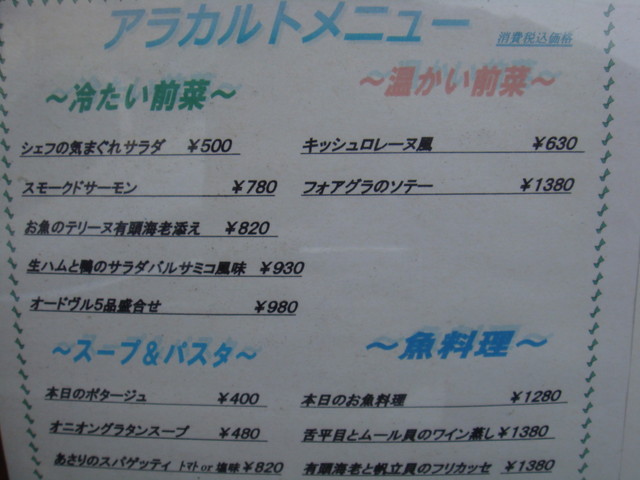 アラカルトメニュー
消費税込価格
～冷たい前菜～
シェフの気まぐれサラダ ¥500
スモークドサーモン ¥780
お魚のテリーヌ有頭海老添え ¥820
生ハムと鴨のサラダバルサミコ風味 ¥930
オードヴル5品盛合せ ¥980
～温かい前菜～
キッシュロレーヌ風 ¥630
フォアグラのソテー ¥1380
～スープ&パスタ～
本日のポタージュ ¥400
オニオングラタンスープ ¥480
あさりのスパゲッティ トマト or 塩味 ¥820
～魚料理～
本日のお魚料理 ¥1280
舌平目とムール貝のワイン蒸し ¥1380
有頭海老と帆立貝のフリカッセ ¥1380